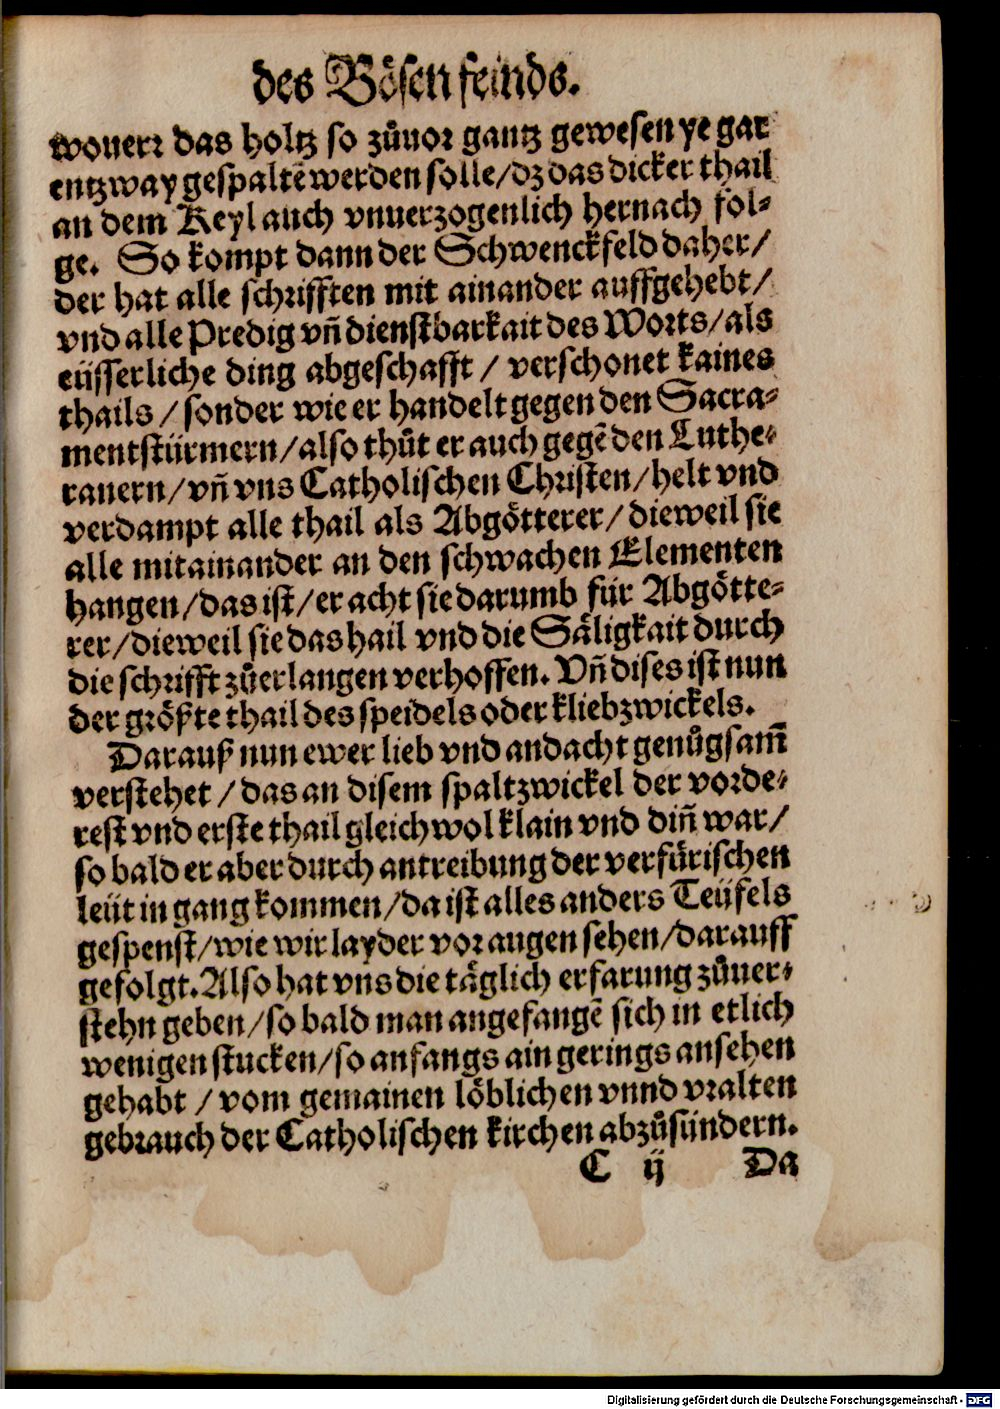 des Bösen feinds.
wouerr das holtz so zůuor gantz gewesen ye gar
entzway gespaltẽ werden solle/dz das dicker thail
an dem Keyl auch vnuerzogenlich hernach fol⸗
ge. So kompt dann der Schwenckfeld daher/
der hat alle schrifften mit ainander auffgehebt/
vnd alle Predig vñ dienstbarkait des Worts/als
eüsserliche ding abgeschafft / verschonet kaines
thails /sonder wie er handelt gegen den Sacra⸗
mentstürmern/also thůt er auch gegẽ den Luthe⸗
ranern/vñ vns Catholischen Christen/helt vnd
verdampt alle thail als Abgötterer/dieweil sie
alle mitainander an den schwachen Elementen
hangen/das ist/er acht sie darumb für Abgötte⸗
rer/dieweil sie das hail vnd die Säligkait durch
die schrifft zůerlangen verhoffen. Vñ dises ist nun
der größte thail des speidels oder kliebzwickels.
Darauß nun ewer lieb vnd andacht genůgsam̃
verstehet /das an disem spaltzwickel der vorde⸗
rest vnd erste thail gleichwol klain vnd diñ war/
so bald er aber durch antreibung der verfürischen
leüt in gang kommen/da ist alles anders Teüfels
gespenst/wie wir layder vor augen sehen/darauff
gefolgt. Also hat vns die täglich erfarung zůuer⸗
stehn geben/so bald man angefangẽ sich in etlich
wenigen stucken/so anfangs ain gerings ansehen
gehabt / vom gemainen löblichen vnnd vralten
gebrauch der Catholischen kirchen abzůsündern.
C ij Da
Digitalisierung gefördert durch die Deutsche Forschungsgemeinschaft - DFG